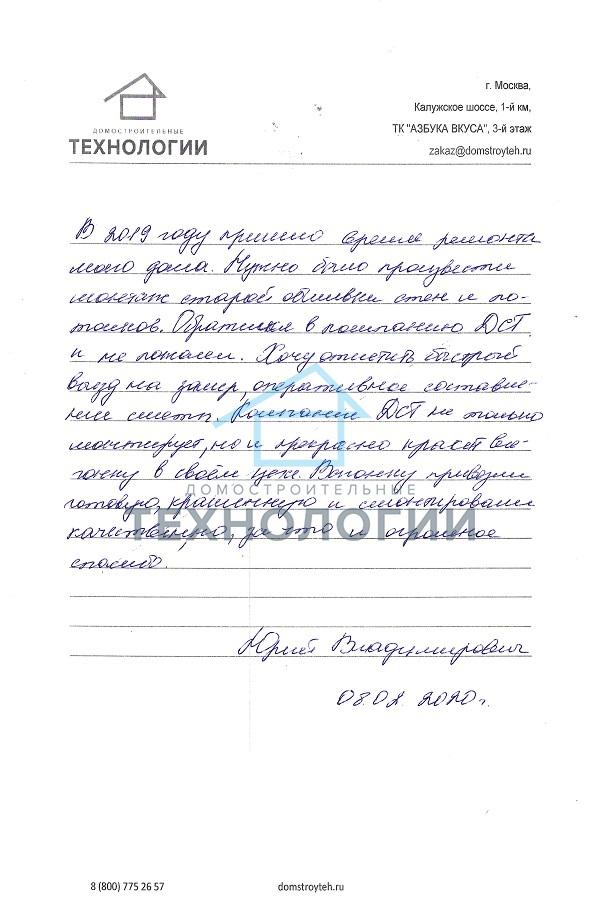 ДОМОСТРОИТЕЛЬНЫЕ
ТЕХНОЛОГИИ
г. Москва,
Калужское шоссе, 1-й км,
ТК "АЗБУКА ВКУСА", 3-й этаж
zakaz@domstroyteh.ru
В 2019 году пришло время ремонта
моего дома. Нужно было произвести
монтаж старой обшивки стен и по-
толков. Обратился в компанию ДСТ
и не пожалел. Хочу отметить быстрый
выезд на замер, оперативное составле-
ние сметы. Компания ДСТ не только
монтирует, но и прекрасно красит ва-
гонку в своём цехе. Вагонку привезли
готовую, крашенную и смонтировали
качественно, за что и огромное
спасибо.
ДОМОСТРОИТЕЛЬНЫЕ
ТЕХНОЛОГИИ
Юрий Владимирович
08.02. 2020г.
8 (800) 775 26 57
domstroyteh.ru